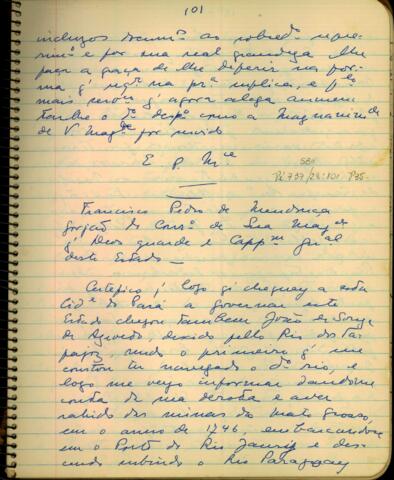 101
incluzos docum.tos ao sobred.o reque-
rim.to e por sua real grandeza lhe
faça a graça de lhe deferir na for-
ma q' req.r na pr.a suplica, e p.lo
mais q' agora alega
de V. Mag.de por
E. R. M.ce
Francisco Pedro de Mendonça
gorjão do Cons.o de Sua Mag.de
q' Deos guarde e Capp.m g.al
deste Estado —
Certefico q' logo q' cheguey a esta
Cid.e do Pará a governar este
Estado chegou tambem João de Souza
de Azevedo, decido pello Rio dos Ta-
pajoz, sendo o primeiro q' me
constou ter navegado o d.o rio, e
logo me veyo informar dandome
conta de sua derota e aver
sahido das minas do Mato Grosso,
em o anno de 1746, embarcandose
em o Porto do Rio Jaurú e des-
cendo subindo o Rio Paraguay